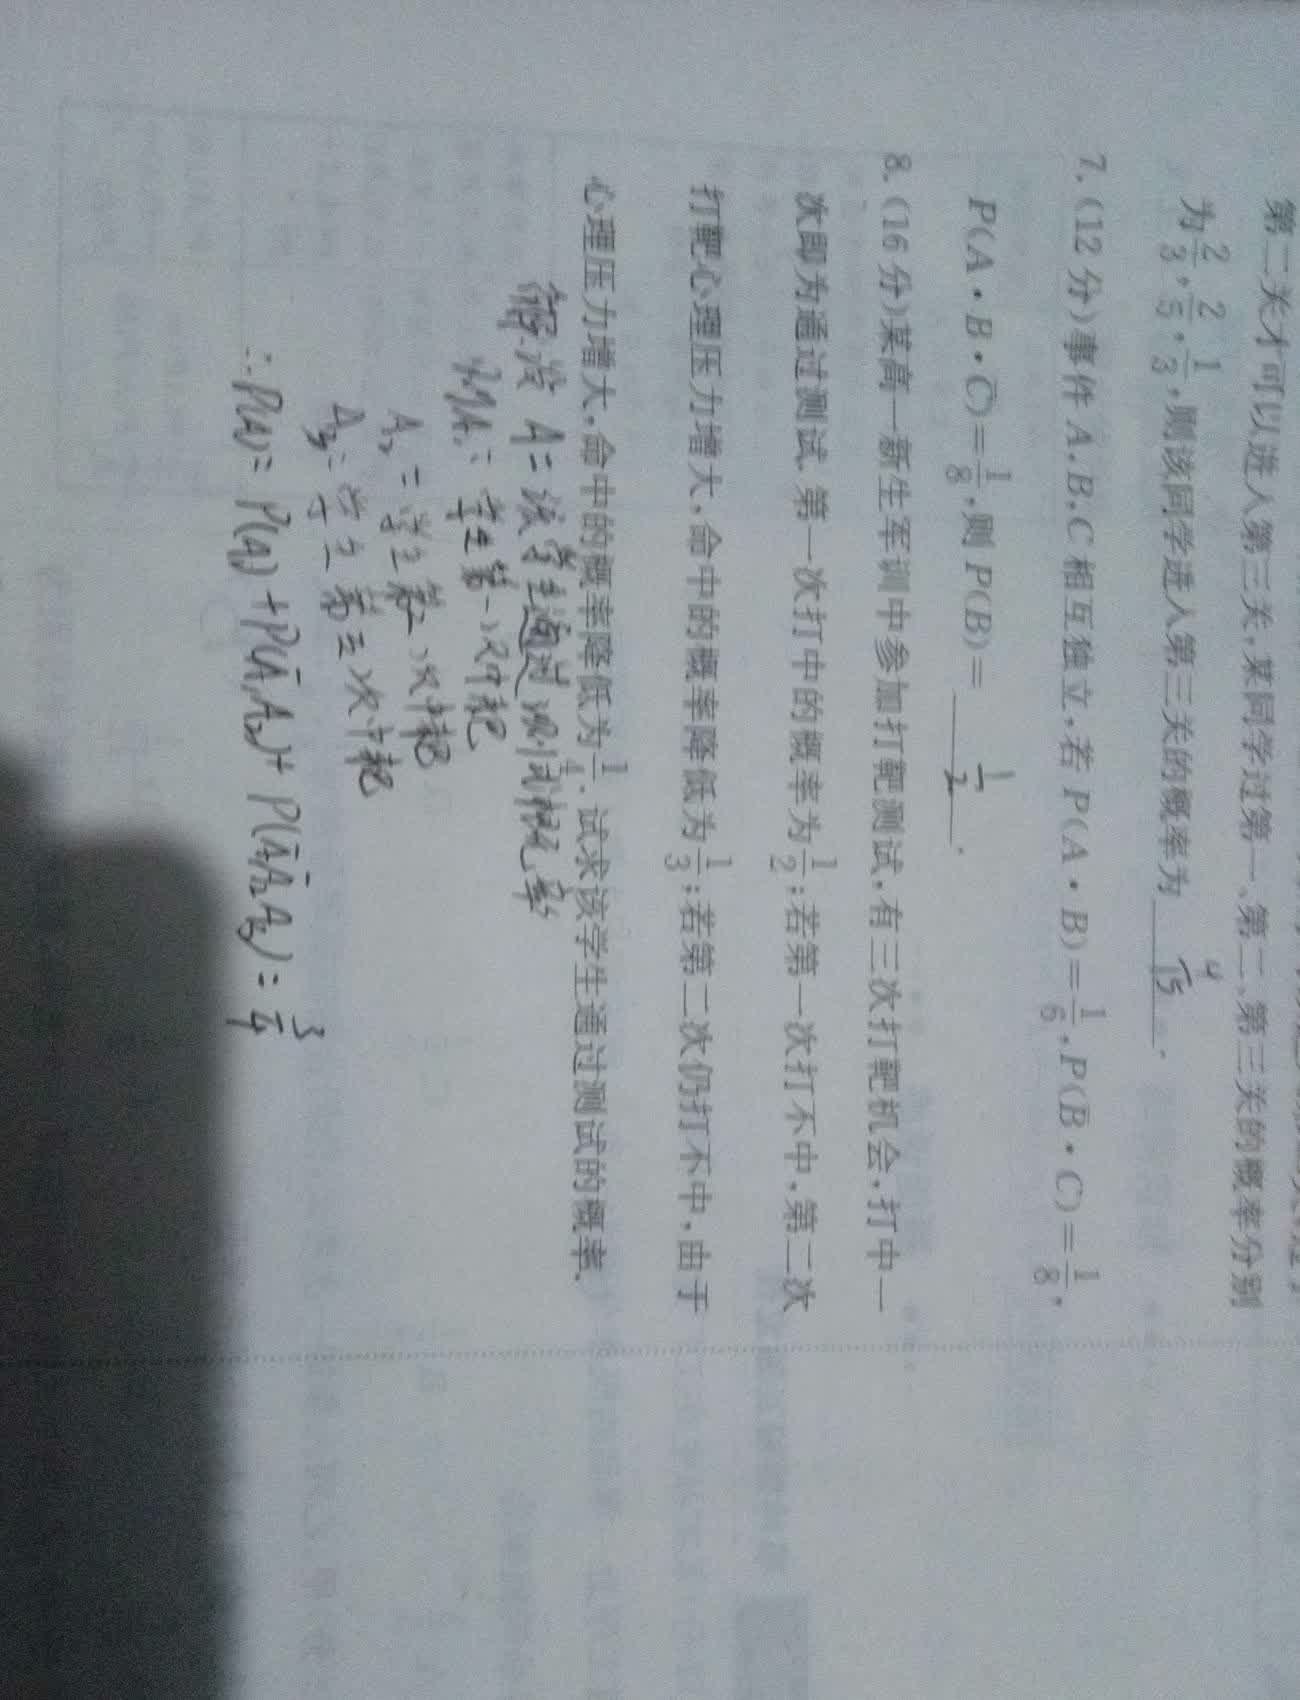 第二关才可以进入第三关,某同学过第一、第二、第三关的概率分别
为2/3,2/5,1/3,则该同学进入第三关的概率为 4/15 .
7.(12分)事件A,B,C相互独立,若P(A·B)=1/6,P(B̄·C)=1/8,
P(A·B·C̄)=1/8,则P(B)= 1/2 .
8.(16分)某高一新生军训中参加打靶测试,有三次打靶机会,打中一
次即为通过测试.第一次打中的概率为1/2;若第一次打不中,第二次
打靶心理压力增大,命中的概率降低为1/3;若第二次仍打不中,由于
心理压力增大,命中的概率降低为1/4.试求该学生通过测试的概率.
解:设 A=该学生通过测试概率
A₁=学生第一次中靶
A₂=学生第二次中靶
A₃=学生第三次中靶
∴P(A)=P(A₁)+P(Ā₁A₂)+P(Ā₁Ā₂A₃)=3/4